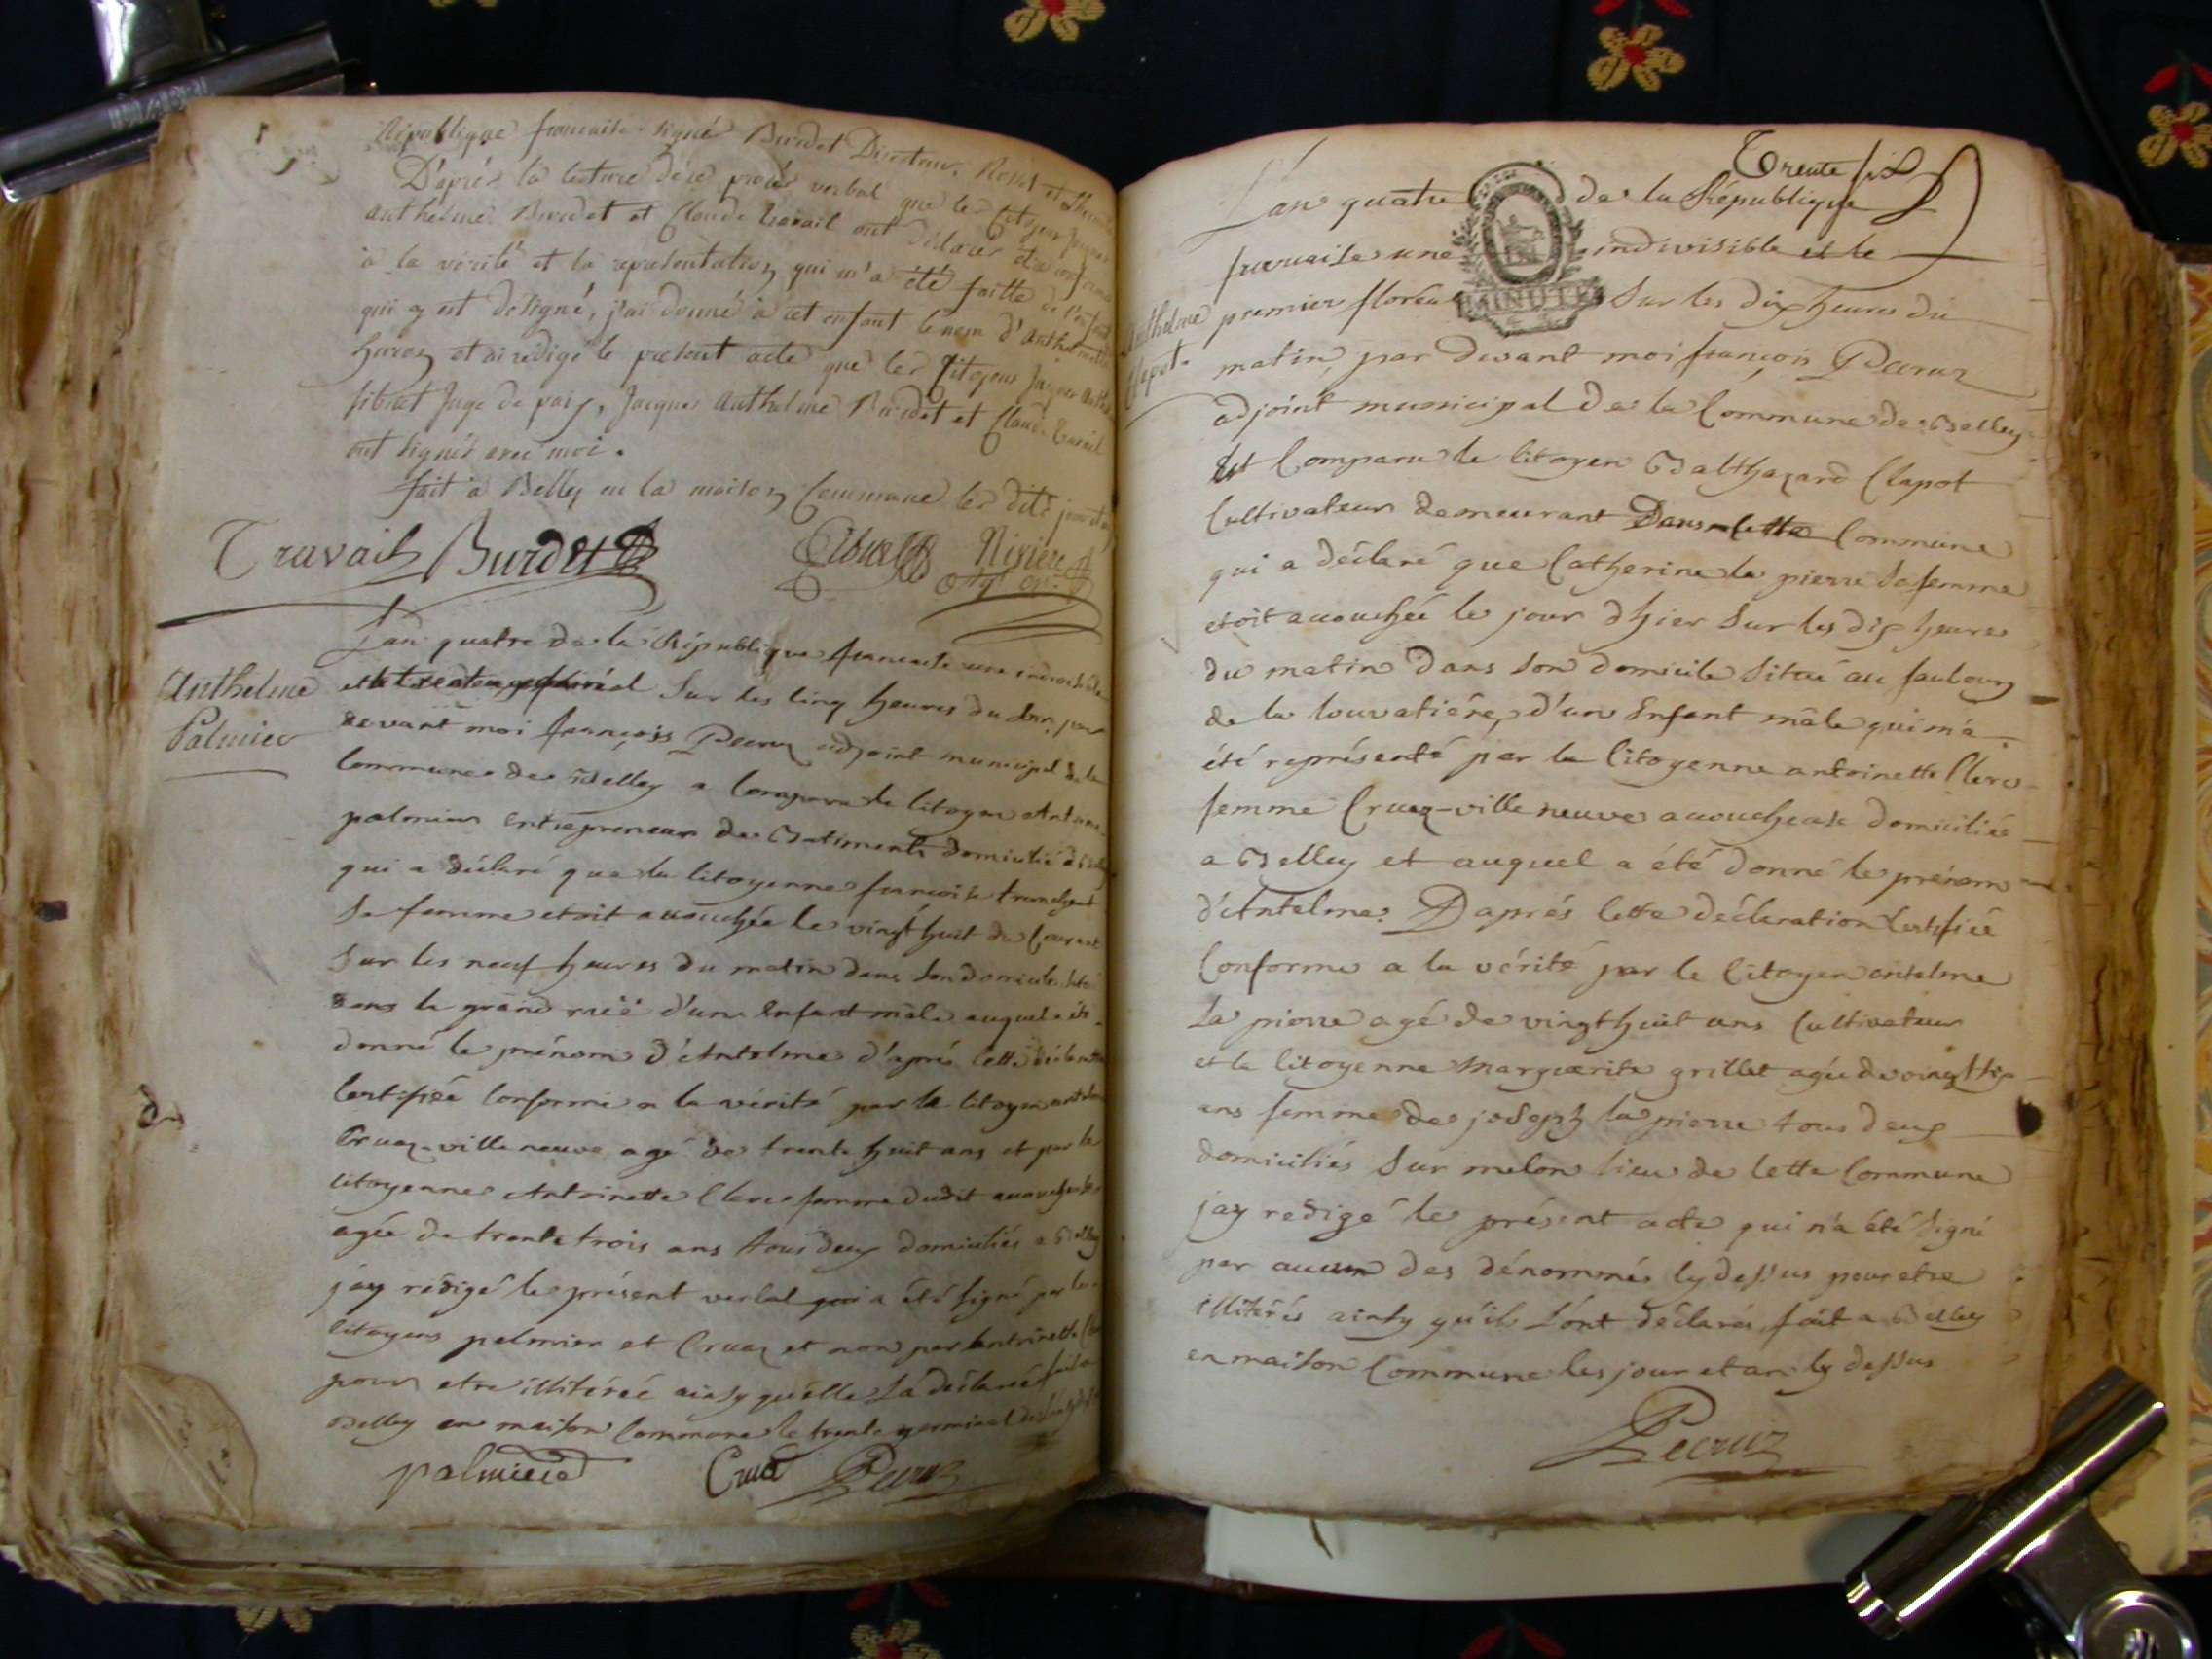 République francaise. signé Burdet Directeur,
D'après la lecture de ce procès verbal que les Citoyens Jacques
anthelme Burdet et Claude travail ont déclarés être conforme
à la vérité et la représentation qui m'a été faitte de l'enfant
qui y est désigné, j'ai donné à cet enfant le nom d'anthelme
et ai rédigé le présent acte que les Citoyens Jacques
sibuet Juge de paix, Jacques Anthelme Burdet et Claude travail
ont signés avec moi.
fait à Belley en la maison Commune les dits jour et an
Travail Burdet Sibuet Riviere
off. pu.
Anthelme
Palmier
L'an quatre de la République francaise une indivisible
et le Sur les cinq heures du soir, par
devant moi françois Pecruz adjoint municipal de la
Commune de Belley a Comparu le citoyen Antoine
palmier Entrepreneur de Batiments domicilié à Belley
qui a déclaré que la citoyenne françoise
Sa femme etoit accouchée le vingt huit du Courant
Sur les neuf heures du matin dans son domicile situé
dans la grand ruë d'un Enfant mâle auquel a été
donné le prénom d'Antelme d'après cette déclaration
Certifiée Conforme a la vérité par le citoyen antelme
Cruaz-ville neuve agé de trente huit ans et par la
citoyenne Antoinette Clerc femme dudit accoucheuse
agée de trente trois ans tous deux domiciliés a Belley
jay rédigé le présent verbal qui a été signé par les
citoyens palmier et Cruaz et non par antoinette Clerc
pour etre illitérée ainsy quelle La déclaré fait a
Belley en maison Commune le trente germinal
palmier Cruaz Pecruz
Trente six
L'an quatre de la République
francaise une indivisible et le
premier floréal Sur les dix heures du
MINUTE
Anthelme
Clapot.
matin, par devant moi françois Pecruz
adjoint municipal de la Commune de Belley
Est Comparu le Citoyen Balthazard Clapot
Cultivateur demeurant Dans cette Commune
qui a déclaré que Catherine la pierre Sa femme
etoit accouchée le jour dhier Sur les dix heures
du matin dans son domicile Situé au faubourg
de la louvatière, d'un Enfant mâle qui m'a
été représenté par la Citoyenne antoinette Clerc
femme Cruaz-ville neuve accoucheuse domiciliée
a Belley et auquel a été donné le prénom
d'Antelme. D'après cette déclaration Certifiée
Conforme a la vérité par le Citoyen antelme
La pierre agé de vingt huit ans Cultivateur
et la Citoyenne Marguerite grillet agée de vingt six
ans femme de joseph la pierre tous deux
domiciliés Sur melon lieu de Cette Commune
jay redigé le présent acte qui n'a été Signé
par aucun des dénommés Cy dessus pour etre
illitérés ainsy qu'ils L'ont déclarés, fait a Belley
en maison Commune les jour et an Cy dessus
Pecruz